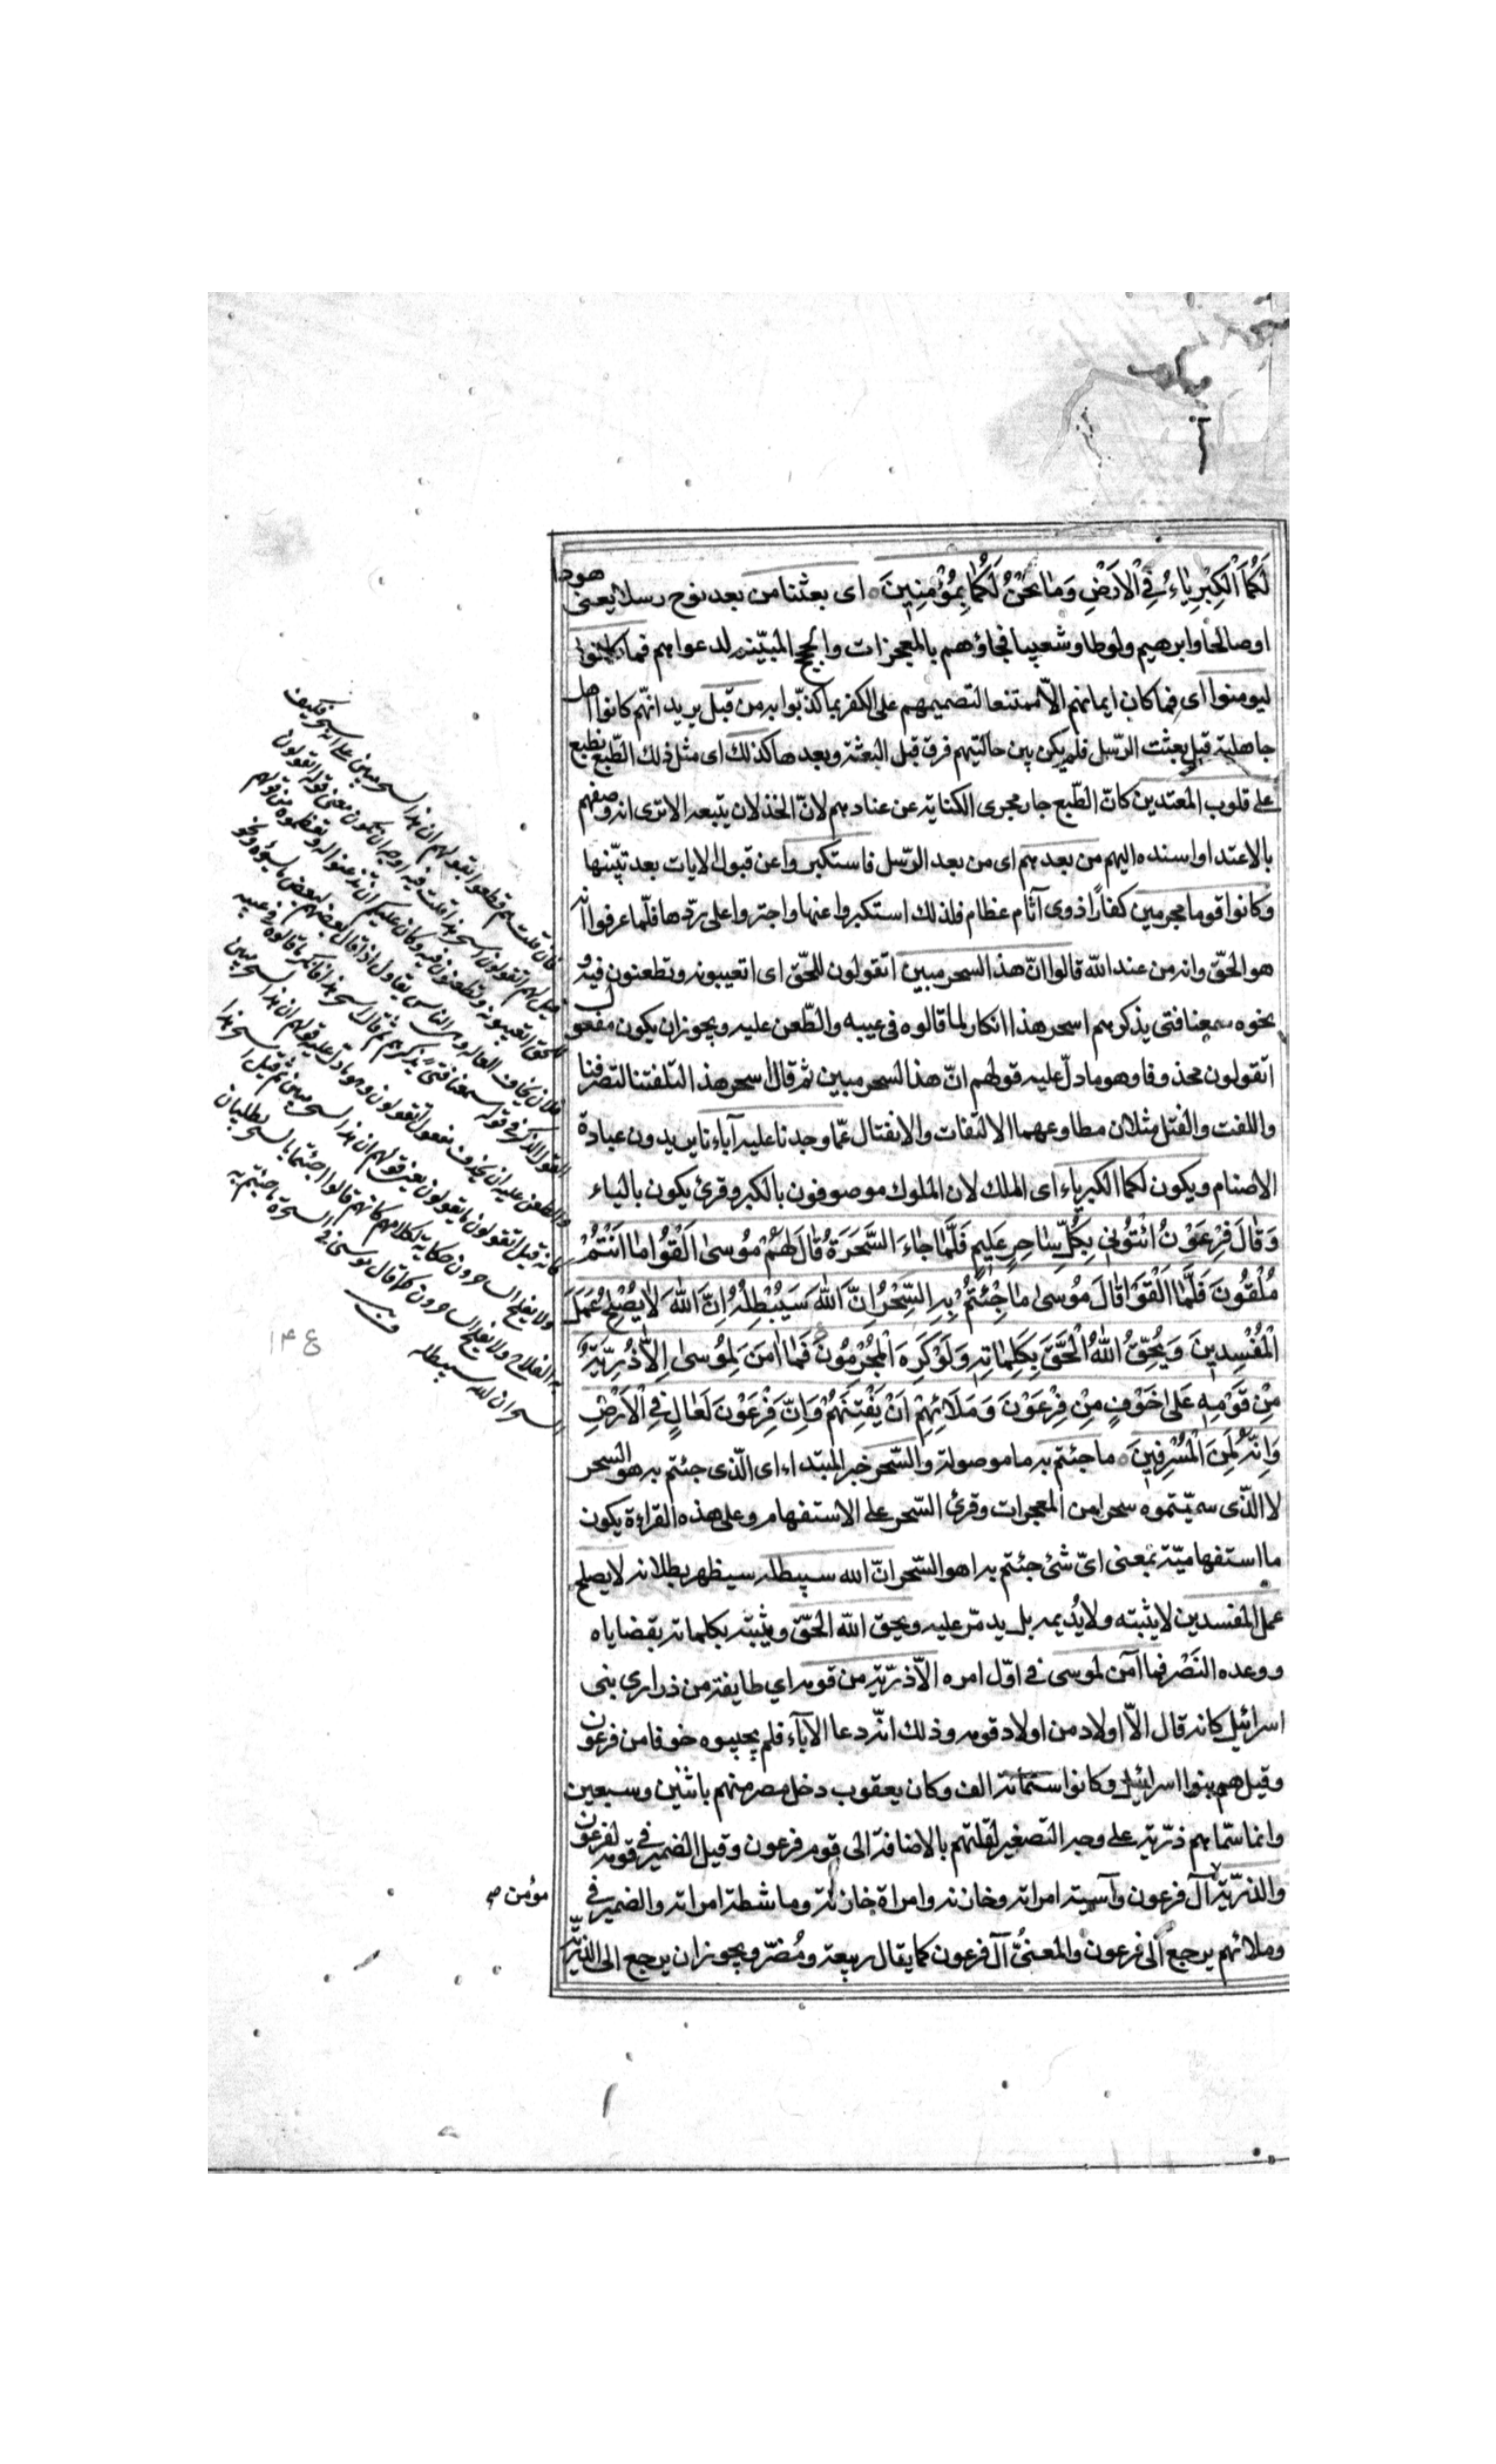 لَكُمَا الْكِبْرِيَاءُ فِي الْاَرْضِ وَمَا نَحْنُ لَكُمَا بِمُؤْمِنِينَ اى بعثنا من بعد نوح رسلا يعنى هودا
او صالحا وابرهيم ولوطا وشعيبا فجاؤهم بالمعجزات والحجج المبيّنه لدعواهم فما كانوا
ليومنوا اى فما كان ايمانهم الّا ممتنعا لتصميمهم على الكفر بما كذّبوا به من قبل يريد انّهم كانوا اهل
جاهلية قبل بعثت الرّسل فلم يكن بين حالتيهم فرق قبل البعثة وبعدها كذلك اى مثل ذلك الطّبع نطبع
على قلوب المعتدين كان الطّبع جار مجرى الكناية عن عنادهم لانّ الخذلان يتبعه الا ترى انه وصفهم
بالاعتداء واسنده اليهم من بعدهم اى من بعد الرّسل فاستكبروا عن قبول الايات بعد تبيّنها
وكانوا قوما مجرمين كفارًا ذوى آثام عظام فلذلك استكبروا عنها واجتروا على ردّها فلّما عرفوا انّه
هو الحقّ وانه من عند الله قالوا انّ هذا السحر مبين اتقولون للحّق اى اتعيبونه وتطعنون فيه و
نحوه سمعنا فتى يذكرهم اسحر هذا انكار لما قالوه فى عيبه والطّعن عليه ويجوز ان يكون مفعول
اتقولون محذوفا وهو ما دلّ عليه قولهم انّ هذا لسحر مبين ثم قال اسحر هذا لتلفتنا لتصرفنا
واللفت والفتل مثلان مطاوعهما الالتفات والانفتال عمّا وجدنا عليه آباءنا يريدون عبادة
الاصنام ويكون لكما الكبرياء اى الملك لان الملوك موصوفون بالكبر وقرئ يكون بالياء
وَقَالَ فِرْعَوْنُ ائْتُونِي بِكُلِّ سَاحِرٍ عَلِيمٍ فَلَمَّا جَاءَ السَّحَرَةُ قَالَ لَهُمْ مُوسَى اَلْقُوا مَا اَنْتُمْ
مُلْقُونَ فَلَمَّا اَلْقَوْا قَالَ مُوسَى مَا جِئْتُمْ بِهِ السِّحْرُ اِنَّ اللهَ سَيُبْطِلُهُ اِنَّ اللهَ لَا يُصْلِحُ عَمَلَ
الْمُفْسِدِينَ وَيُحِقُّ اللهُ الْحَقَّ بِكَلِمَاتِهِ وَلَوْ كَرِهَ الْمُجْرِمُونَ فَمَا امَنَ لِمُوسَى اِلَّا ذُرِّيَّةٌ
مِنْ قَوْمِهِ عَلَى خَوْفٍ مِنْ فِرْعَوْنَ وَمَلَائِهِمْ اَنْ يَفْتِنَهُمْ وَاِنَّ فِرْعَوْنَ لَعَالٍ فِي الْاَرْضِ
وَاِنَّهُ لَمِنَ الْمُسْرِفِينَ ما جئتم به ما موصولة والسّحر خبر المبتداء اى الّذى جئتم به هو السحر
لا الّذى سمّيتموه سحرا من المعجرات وقرئ السّحر على الاستفهام وعلى هذه القراءة يكون
ما استفهاميّة بمعنى اىّ شئ جئتم به اهو السّحر انّ الله سيبطله سيظهر بطلانه لا يصلح
عمل المفسدين لا يثبته ولا يُديمه بل يدمّر عليه ويحق الله الحقّ ويثبته بكلماته بقضاياه
ووعده النَصْر فما آمن لموسى فى اوّل امره الّا ذرّيّة من قومه اي طايفة من ذرارى بنى
اسرائيل كانه قال الّا اولاد من اولاد قومه وذلك انّه دعا الآباء فلم يجيبوه خوفا من فرعون
وقيل هم بنوا اسرائيل وكانوا ستمائة الف وكان يعقوب دخل مصر منهم باثنين وسبعين
وانما سمّاهم ذرّيّة على وجه التصغير لقلتهم بالاضافة الى قوم فرعون وقيل الضمير فى قومه لفرعون
والذرّيّة آل فرعون وآسية امراته وخازنه وامراة خازنه وماشطة امراته والضمير فى
وملائهم يرجع الى فرعون والمعنىُّ آل فرعون كما يقال ربيعة ومُضَر ويجوز ان يرجع الى الذرّيّة
مؤمن
فان قلت هم قطعوا بقولهم ان هذا لسحر مبين على انه سحر فكيف
قيل لهم اتقولون اسحر هذا قلت فيه اوجه ان تكون معنى قوله اتقولون
للحق اتعيبونه وتطعنون فيه وكان عليكم ان تذعنوا له وتعظموه من قولهم
فلان يخاف القالة وبين الناس تقاول اذا قال بعضهم لبعض ما يسؤه ونحو
القول الذكر فى قوله سمعنا فتى يذكرهم ثم قال اسحر هذا فانكر ما قالوه فى عيبه
والطعن عليه ان يحذف مفعول اتقولون وهو ما دل عليه قولهم ان هذا لسحر مبين
كانه قيل اتقولون ما تقولون يعنى قولهم ان هذا لسحر مبين ثم قيل اسحر هذا
ولا يفلح الساحرون حكاية لكلامهم كانهم قالوا اجئتما بالسحر تطلبان
به الفلاح ولا يفلح الساحرون كما قال موسى للسحرة ما جئتم به
السحر ان الله سيبطله
١۴٤